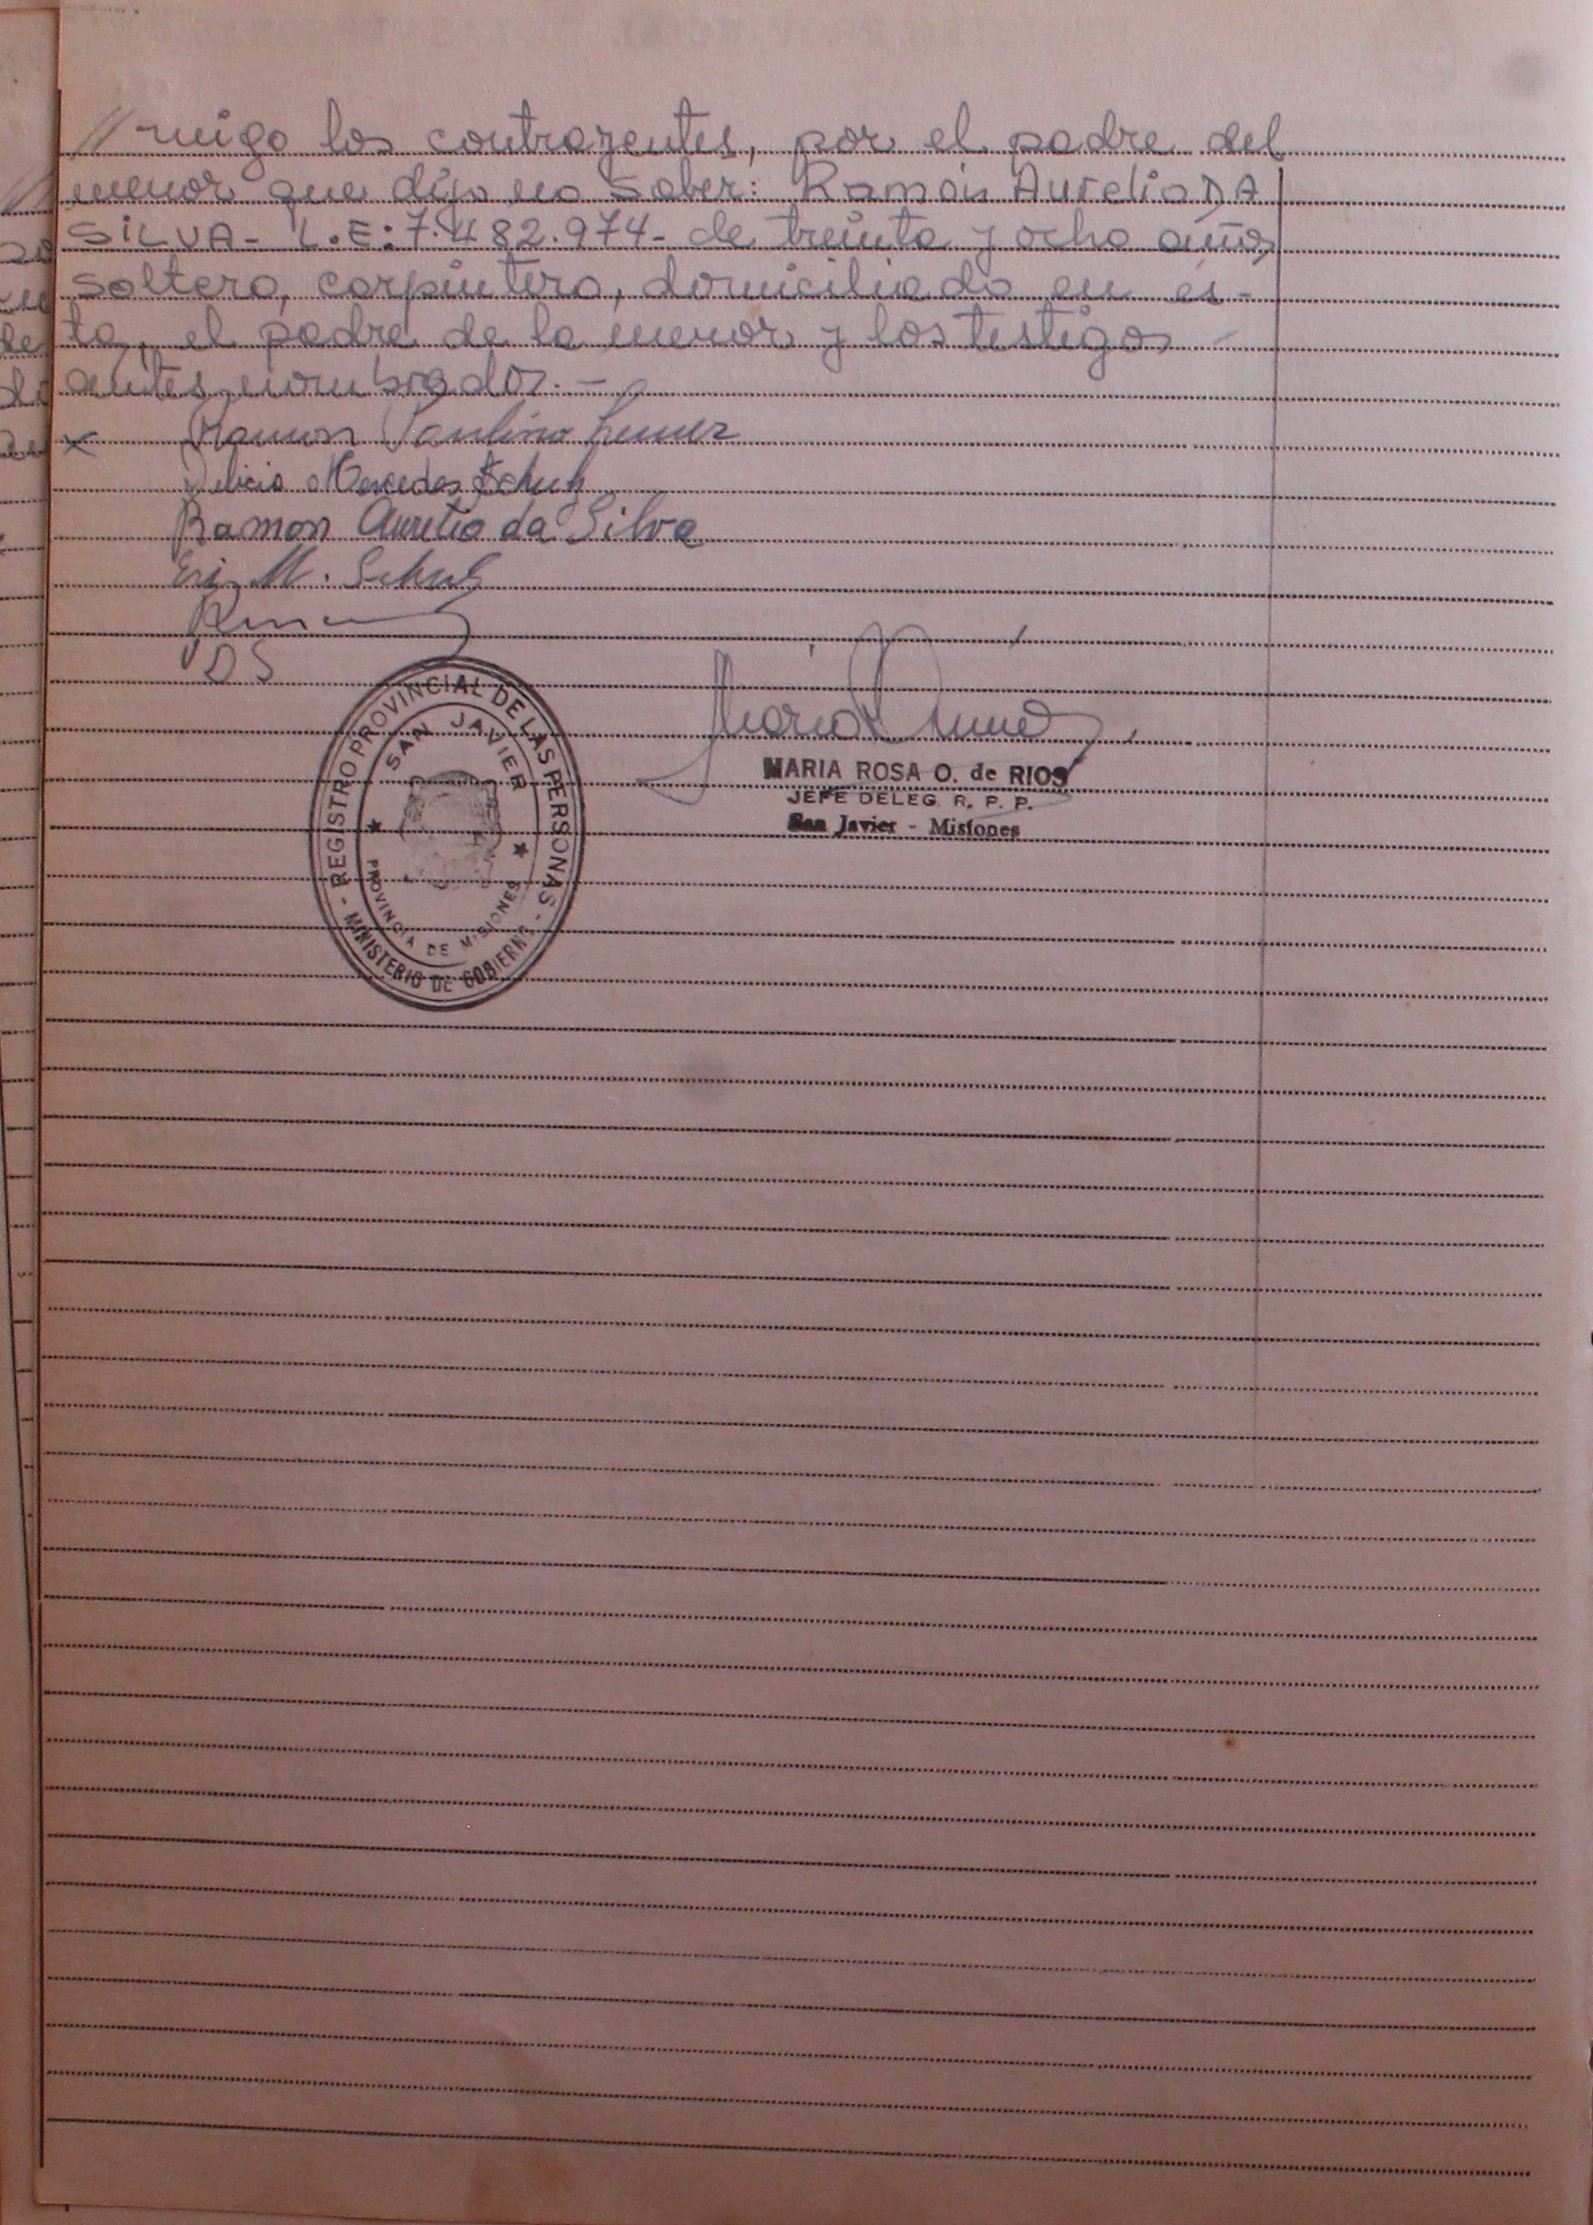 // migo los contrayentes, por el padre del
menor que dijo no saber: Ramón Aurelio DA
SILVA - L.E: 7.482.974 - de treinta y ocho años,
soltero, carpintero, domiciliado en és-
ta, el padre de la menor y los testigos
antes nombrados. -
x Ramon Paulino
Delicia Mercedes Schuh
Ramon Aurelio da Silva
M. Schuh
DS
REGISTRO PROVINCIAL DE LAS PERSONAS
- MINISTERIO DE GOBIERNO -
SAN JAVIER
PROVINCIA DE MISIONES
MARIA ROSA O. de RIOS
JEFE DELEG. R. P. P.
San Javier - Misiones